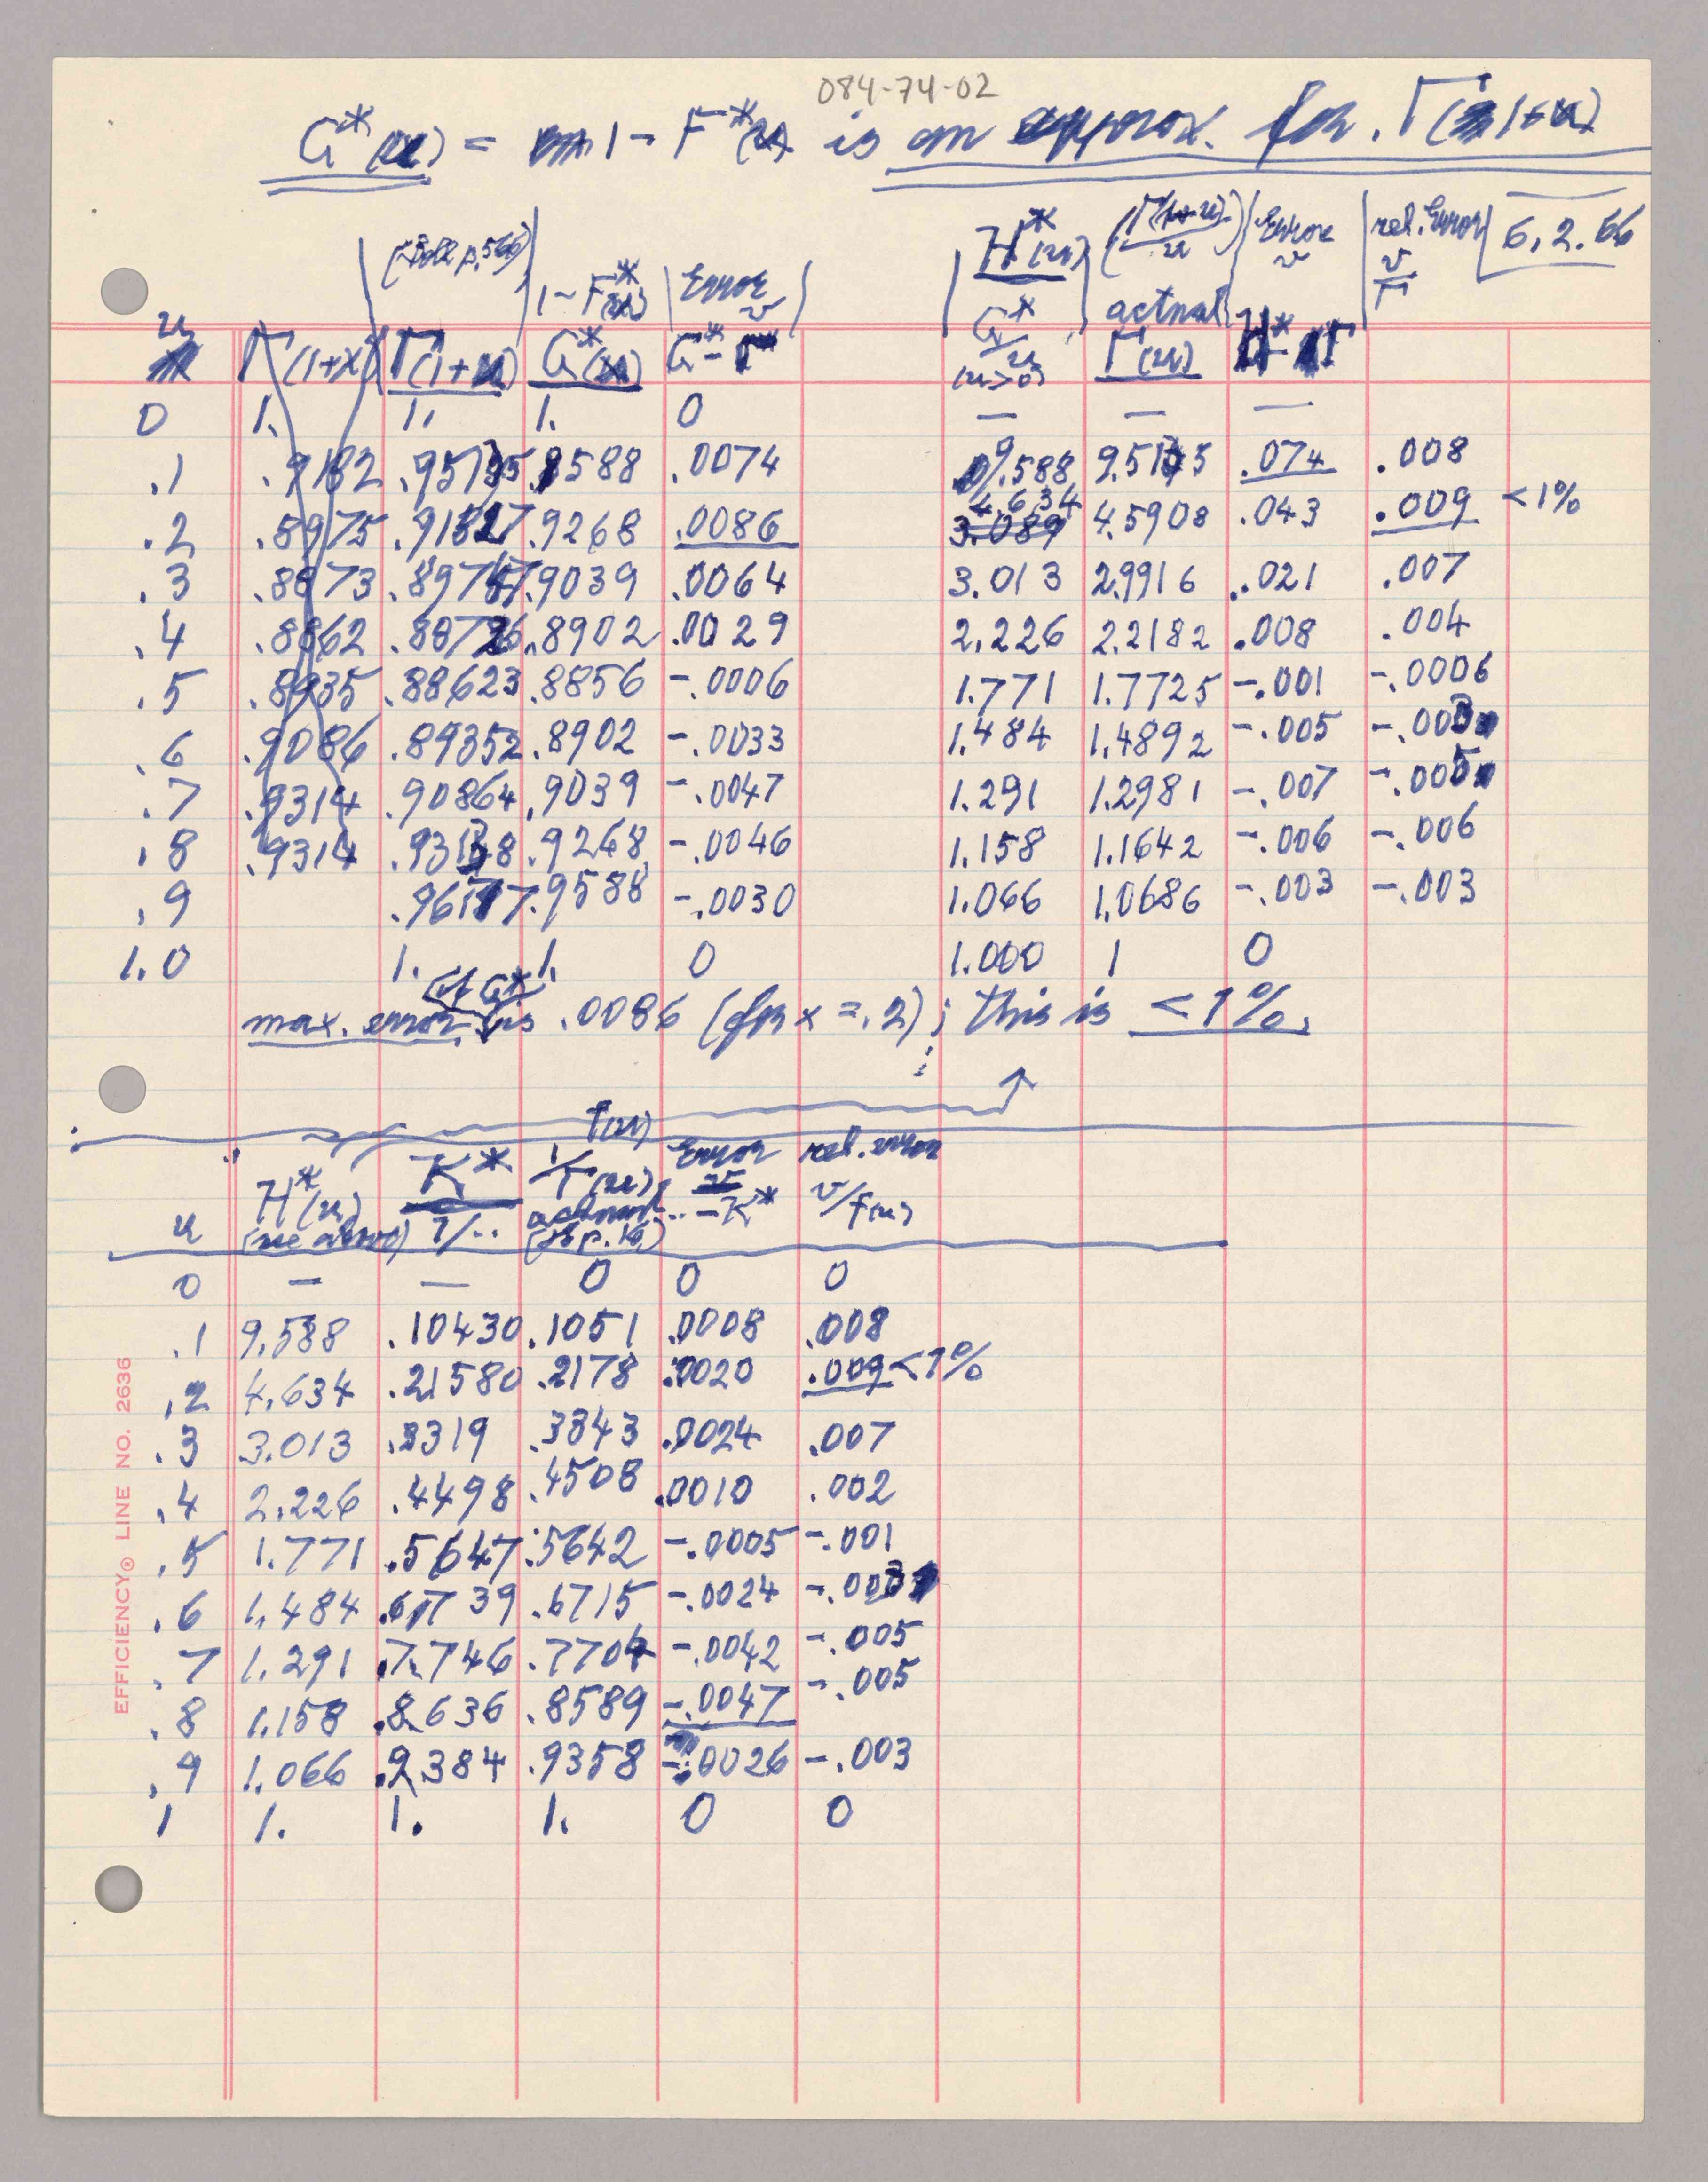 084-74-02
G*(u) = 1 - F*(u) is an approx. for Γ(1+u)
H*(u) Γ(1+u)/u Error v rel. Error v/Γ 6.2.66
1-F*(u) Error v G*/u (u>0) actual
u Γ(1+x) Γ(1+u) G*(u) G*-Γ Γ(u) H*-Γ
0 1. 1. 1. 0 — — —
.1 .9182 .95135 .9588 .0074 9.588 9.5135 .074 .008
.2 .8975 .91817 .9268 .0086 4.634 3.089 4.5908 .043 .009 <1%
.3 .8873 .89747 .9039 .0064 3.013 2.9916 .021 .007
.4 .8862 .88726 .8902 .0029 2.226 2.2182 .008 .004
.5 .8935 .88623 .8856 -.0006 1.771 1.7725 -.001 -.0006
.6 .9086 .89352 .8902 -.0033 1.484 1.4892 -.005 -.003
.7 .9314 .90864 .9039 -.0047 1.291 1.2981 -.007 -.005
.8 .9314 .93138 .9268 -.0046 1.158 1.1642 -.006 -.006
.9 .96177 .9588 -.0030 1.066 1.0686 -.003 -.003
1.0 1. 1. 0 1.000 1 0
of G*
max. error is .0086 (for x = .2); this is <1%.
f(u)
H*(u) K* 1/Γ(u) Error rel. error
u (see above) 1/.. actual ..-K* v/f(u)
0 — — 0 0 0
.1 9.588 .10430 .1051 .0008 .008
.2 4.634 .21580 .2178 .0020 .009 <1%
.3 3.013 .3319 .3343 .0024 .007
.4 2.226 .4498 .4508 .0010 .002
.5 1.771 .5647 .5642 -.0005 -.001
.6 1.484 .6739 .6715 -.0024 -.003
.7 1.291 .7746 .7704 -.0042 -.005
.8 1.158 .8636 .8589 -.0047 -.005
.9 1.066 .9384 .9358 -.0026 -.003
1 1. 1. 1. 0 0
EFFICIENCY® LINE NO. 2636